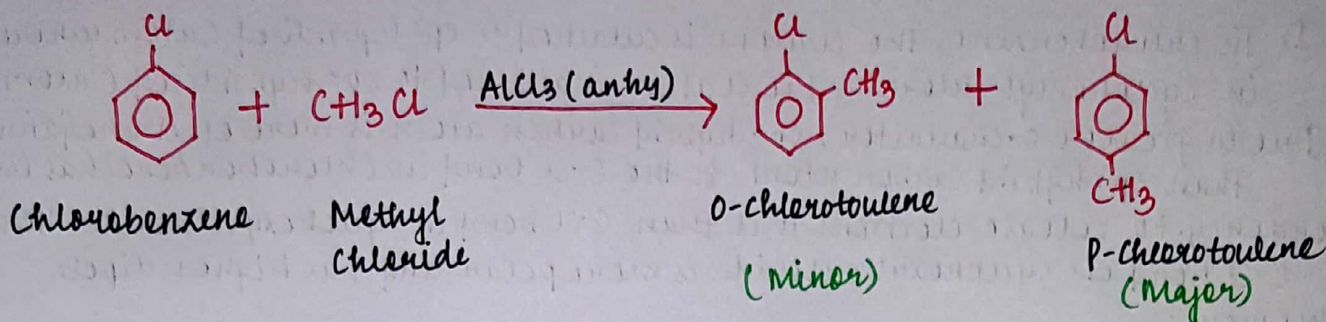 Cl Cl Cl
+ CH3Cl AlCl3 (anhy) CH3 +
CH3
Chlorobenzene Methyl Chloride
O-Chlorotoulene
(Minor)
P-Chlorotoulene
(Major)